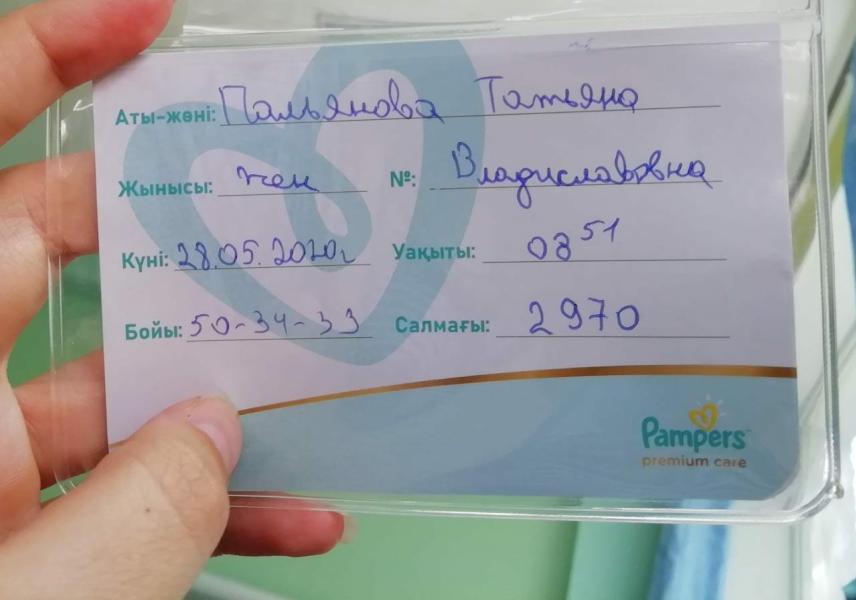 Аты-жөні: Пальянова Татьяна
Жынысы: жен №: Владиславовна
Күні: 28.05.2020г Уақыты: 08 51
Бойы: 50-34-33 Салмағы: 2970
Pampers
premium care